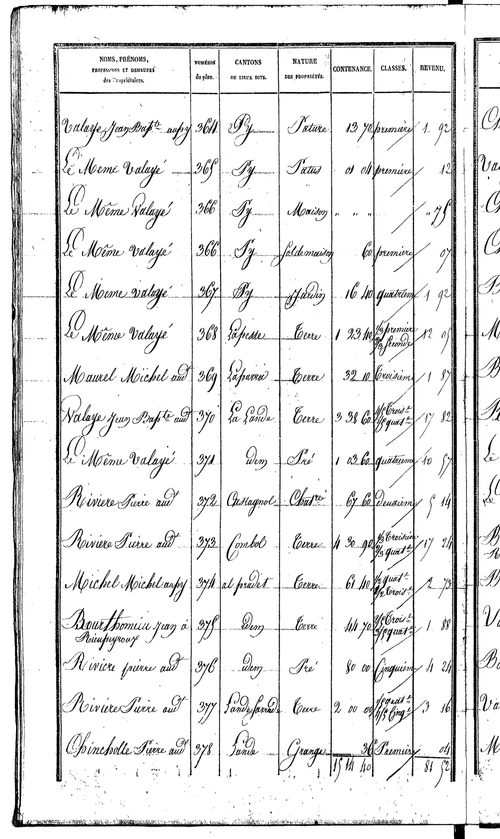 NOMS, PRÉNOMS, PROFESSION ET DEMEURES des Propriétaires. | NUMÉROS du plan. | CANTONS OU LIEUX DITS. | NATURE DES PROPRIÉTÉS. | CONTENANCE. | CLASSES. | REVENU.
Valayé Jean Bapte au py 364 Py Pature 13 70 première 1 92
Le Même Valayé 365 Py Patus 01 04 première 12
Le Même Valayé 366 Py Maison " " " " 75
Le Même Valayé 366 Py Sol de maison 60 première 07
Le Même Valayé 367 Py Jardin 16 40 quatrième 1 92
Le Même Valayé 368 Terre 1 23 40 première seconde 12 05
Maurel Michel aud 369 Terre 32 10 troisième 1 87
Valaye Jean Bapte aud 370 La Lande Terre 3 38 60 17 82
Le Même Valayé 371 idem Pré 1 03 60 quatrième 10 57
Riviere Pierre aud 372 Castagnol Chatré 67 60 deuxième 5 14
Rivière Pierre aud 373 Combol Terre 4 30 90 17 24
Michel Michel au py 374 al pradet Terre 61 40 2 73
Bourthomieu Jean à Rieupeyroux 375 idem Terre 44 70 1 88
Rivière pierre aud 376 idem Pré 80 00 Cinquième 4 24
Rivière Pierre aud 377 Terre 2 00 00 3 16
Chincholle Pierre aud 378 Lande Grange 36 Première 04
15 14 40 81 52